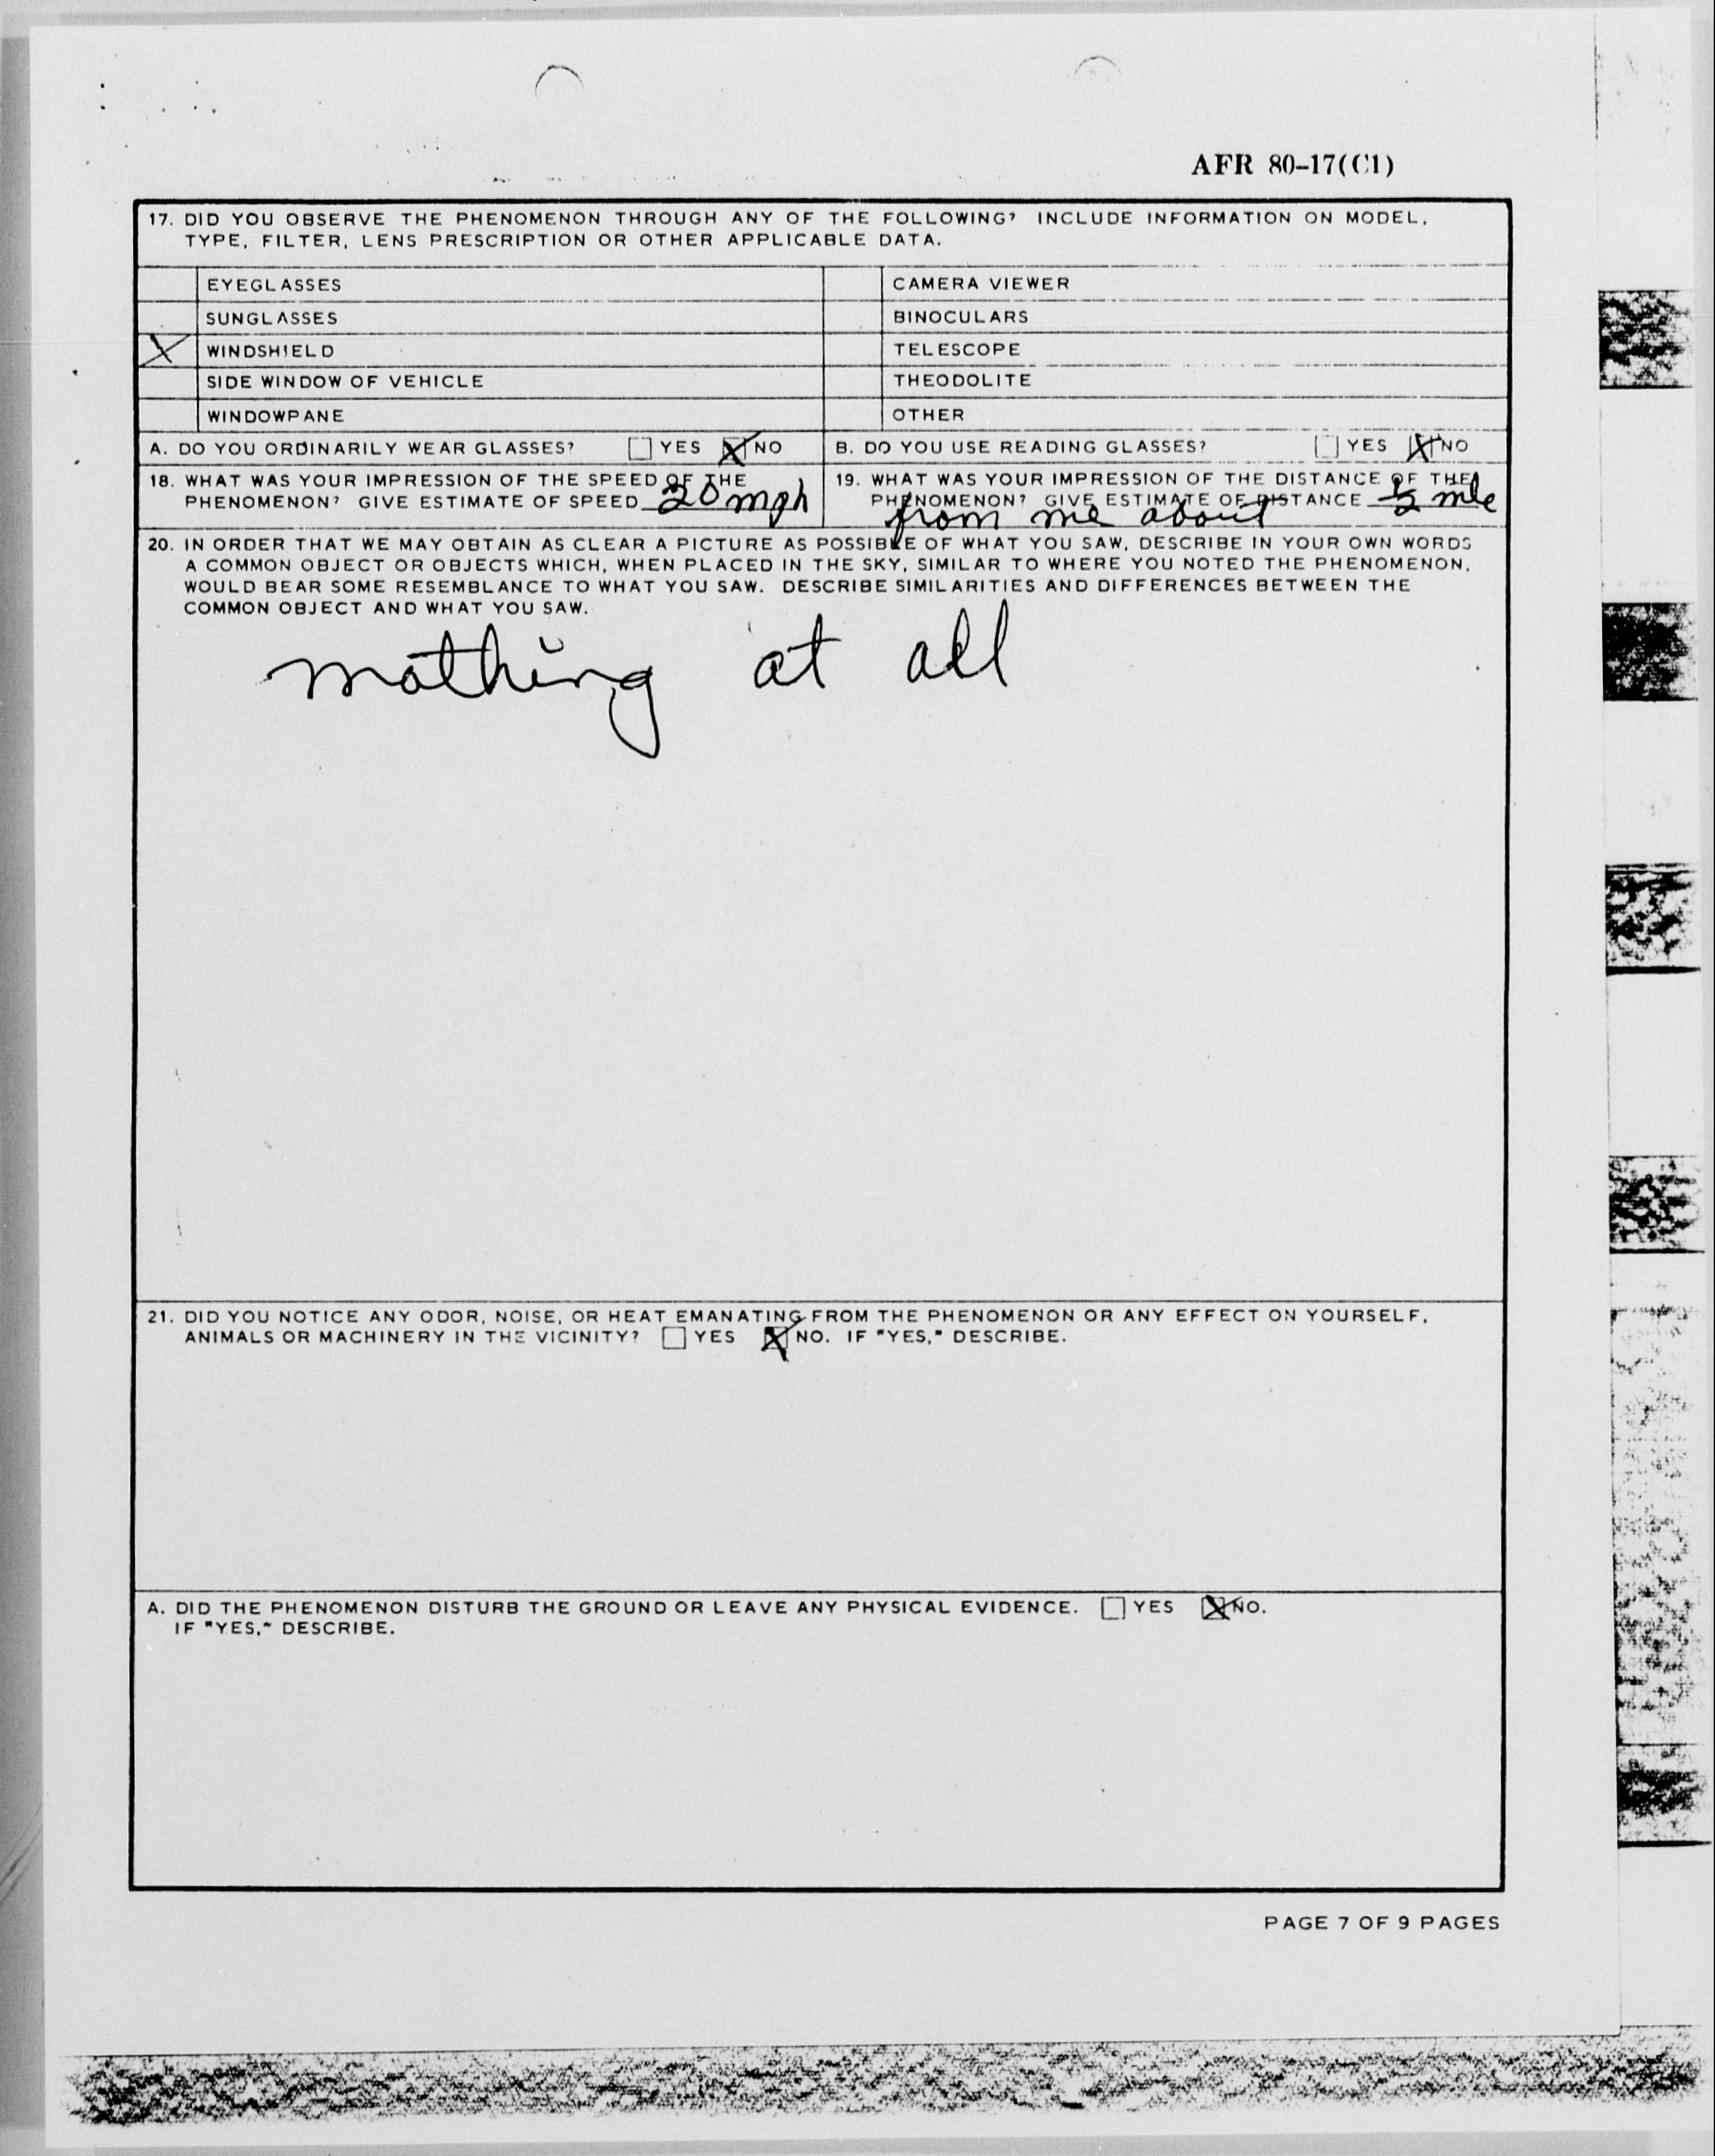 AFR 80-17(C1)
17. DID YOU OBSERVE THE PHENOMENON THROUGH ANY OF THE FOLLOWING? INCLUDE INFORMATION ON MODEL,
TYPE, FILTER, LENS PRESCRIPTION OR OTHER APPLICABLE DATA.
EYEGLASSES CAMERA VIEWER
SUNGLASSES BINOCULARS
X WINDSHIELD TELESCOPE
SIDE WINDOW OF VEHICLE THEODOLITE
WINDOWPANE OTHER
A. DO YOU ORDINARILY WEAR GLASSES? YES X NO B. DO YOU USE READING GLASSES? YES X NO
18. WHAT WAS YOUR IMPRESSION OF THE SPEED OF THE
PHENOMENON? GIVE ESTIMATE OF SPEED 20 mph
19. WHAT WAS YOUR IMPRESSION OF THE DISTANCE OF THE
PHENOMENON? GIVE ESTIMATE OF DISTANCE ½ mle
from me about
20. IN ORDER THAT WE MAY OBTAIN AS CLEAR A PICTURE AS POSSIBLE OF WHAT YOU SAW, DESCRIBE IN YOUR OWN WORDS
A COMMON OBJECT OR OBJECTS WHICH, WHEN PLACED IN THE SKY, SIMILAR TO WHERE YOU NOTED THE PHENOMENON,
WOULD BEAR SOME RESEMBLANCE TO WHAT YOU SAW. DESCRIBE SIMILARITIES AND DIFFERENCES BETWEEN THE
COMMON OBJECT AND WHAT YOU SAW.
nothing at all
21. DID YOU NOTICE ANY ODOR, NOISE, OR HEAT EMANATING FROM THE PHENOMENON OR ANY EFFECT ON YOURSELF,
ANIMALS OR MACHINERY IN THE VICINITY? YES X NO. IF "YES," DESCRIBE.
A. DID THE PHENOMENON DISTURB THE GROUND OR LEAVE ANY PHYSICAL EVIDENCE. YES X NO.
IF "YES," DESCRIBE.
PAGE 7 OF 9 PAGES